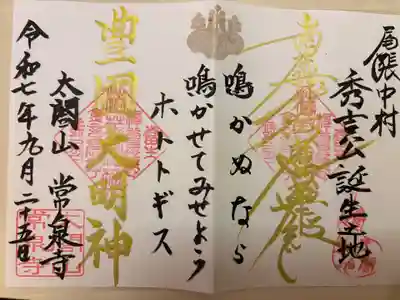 尾張中村
秀吉公誕生之地
鳴かぬなら
鳴かせてみせよう
ホトトギス
豊国大明神
太閤山 常泉寺
令和七年九月二十五日